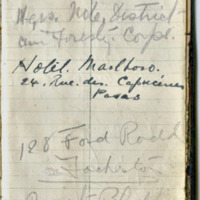 Hqrs. Nole District
Can Forestry Corps.
Hotel. Marlboro.
24. Rue. des. Capucines
Paras
128 Ford Road